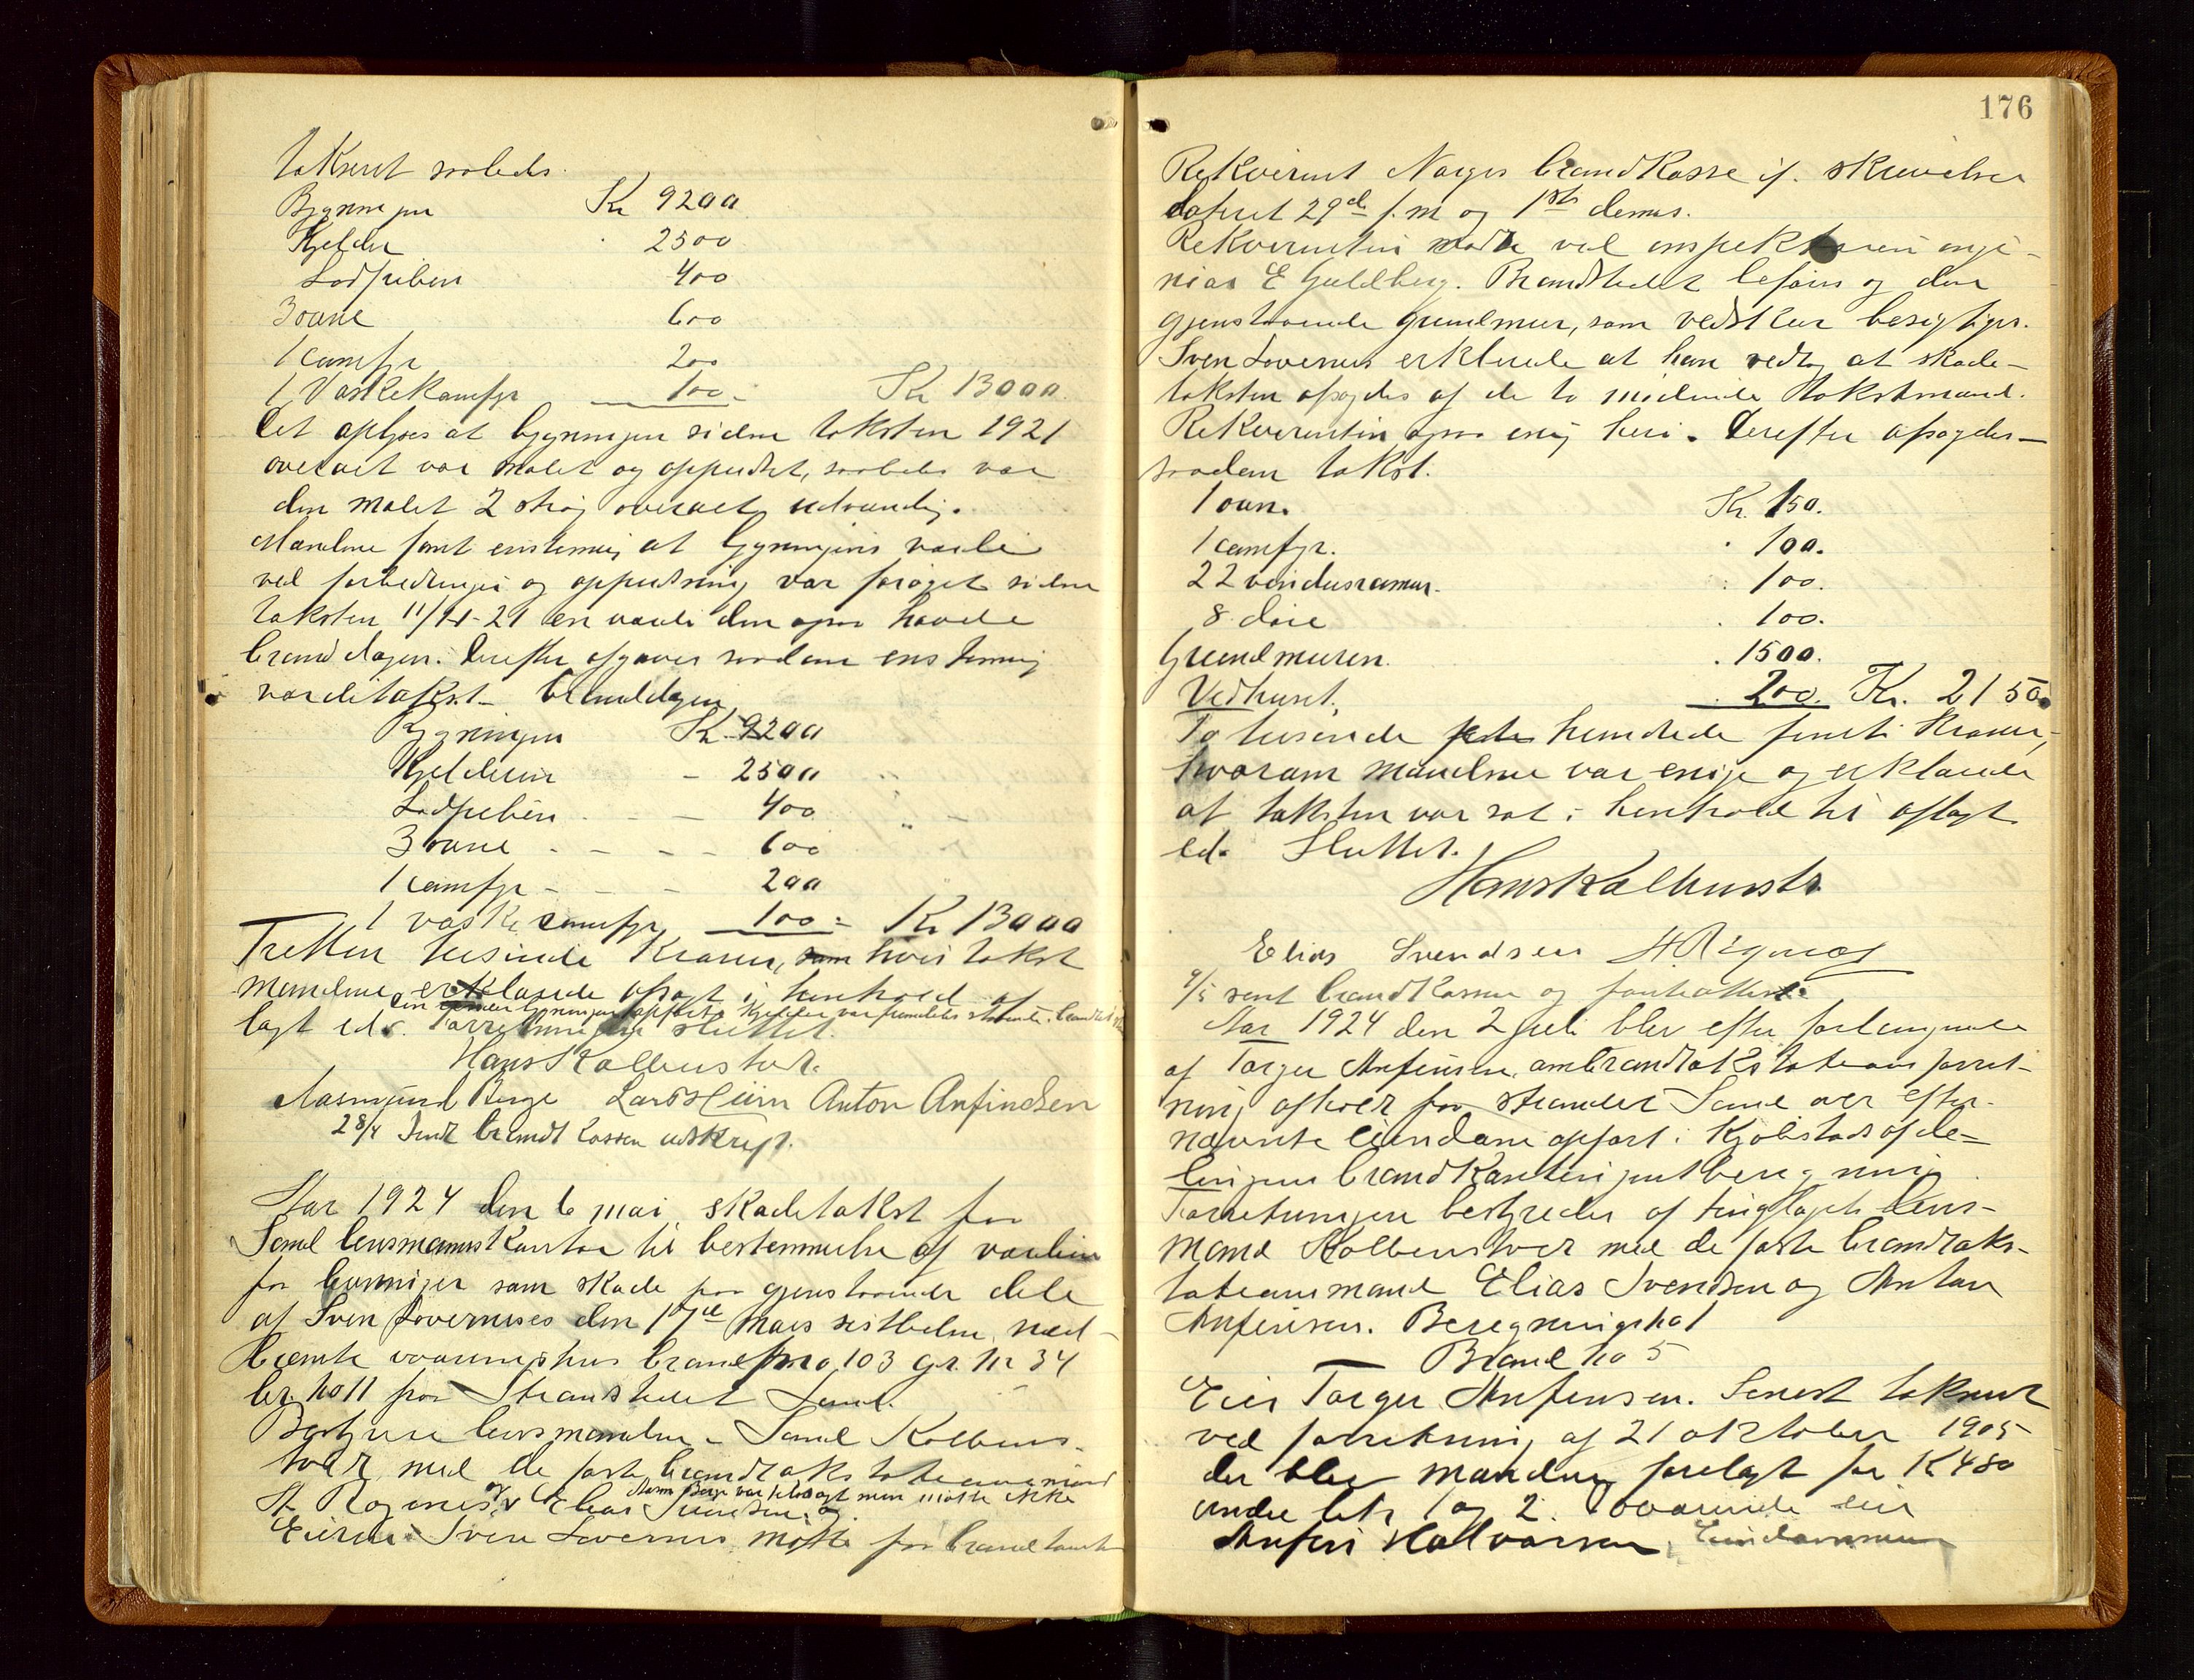 takseret saaledes.
Bygningen Kr 9200
Kjelder 2500
Lodpiben 400
3 ovne 600
1 comfyr 200
1 Vaskekomfyr 100 = Kr 13000
Det oplyses at bygningen siden taksten 1921
overalt var malet og oppudset, saaledes var
den malet 2 strøg overalt udvendig.
Mændene fant enstemmig at bygningens værdi
ved forbedringer og oppudsning var forøget siden
taksten 11/11-21 en værdi den ogsaa havde
branddagen. Derefter afgaves saadan enstemmig
værditakst branddagen
Bygningen Kr. 9200
Kjelderen - 2500
Lodpiben - - 400
3 ovne - - - - 600
1 comfyr - - - 200
1 vaskecomfyr 100 = Kr 13000
Tretten tusinde Kroner, hvis takst
mændene erklærte afsagt i henhold af
lagt ed. Forretningen sluttet.
Hans Kolbenstvedt.
Aasmund Berge Anton Anfindsen
28/4 Sendt brandkassen udskrift.
Aar 1924 den 6 mai skadetakst fra
Sand lensmannskontor til bestemmelse af værdien
for bygninger som skade paa gjenstaaende dele
af Sven Lovernæses den 17de mars sistleden ned-
brænte vaaningshus brand no 103 gr. nr 34
br. no 11 paa Strandstedet Sand.
Bestyrer lensmanden i Sand Kolbens-
tvedt med de faste brandtakstationsmænd
og Aasm Berge var tilsagt men møtte ikke
Elias Svendsen og
Eieren Sven Lovernæs møtte paa brandtomten
176
Rekvirent Norges brandkasse if. skrivelser
dateret 29de f.m og 1ste dennes.
Rekvirenten møtte ved inspektøren inge-
niør E Guldberg. Brandstedet befares og den
gjenstaaende grundmur, som vedskur besigtiges.
Sven Lovernes erklærede at han vedtog at skade-
taksten afsagdes af de to mødende takstmænd.
Rekvirenten ogsaa enig heri. Derefter afsagdes
saadan takst.
1 ovn. Kr. 150.
1 comfyr. " 100.
22 vinduesrammer. " 100.
8 døre " 100.
Grundmuren. " 1500.
Vedhuset. " 200. Kr. 2150.
To tusinde hundrede femti Kroner,
hvorom mændene var enige og erklærede
at taksten var sat i henhold til aflagt
ed. Sluttet.
Hans Kolbenstvedt
Elias Svendsen
9/5 sent brandkassen og fanteattest.
Aar 1924 den 2 juli blev efter forlangende
af Torger Anfinsen brandtakstationsforret-
ning afholt paa strandstedet Sand over efter-
nævnte eiendom opført i Kjøbstadsafde-
lingens brandkontingentberegning
Forretningen bestyredes af tinglagets lens-
mand Kolbenstvedt med de faste brandtaks-
tationsmænd Elias Svendsen og Anton
Anfinsen. Beregningsno 1
Brand no 5
Eier Torger Anfinsen. Senest takseret
ved forretning af 21 oktober 1905
der blev mændene forelagt for K 480
under litr 1 og 2. Nuværende eier
Anfin Halvorsen. Eiendommen